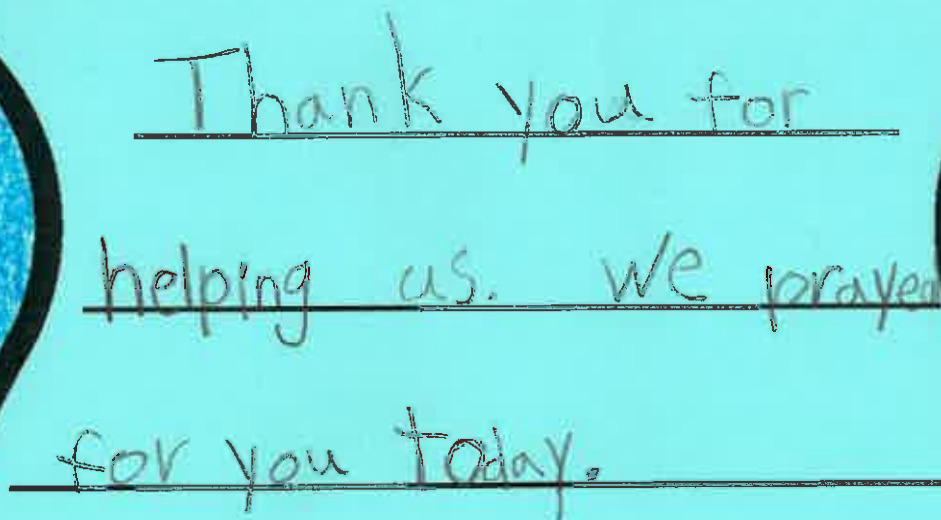 Thank you for
helping us. We prayed
for you today.